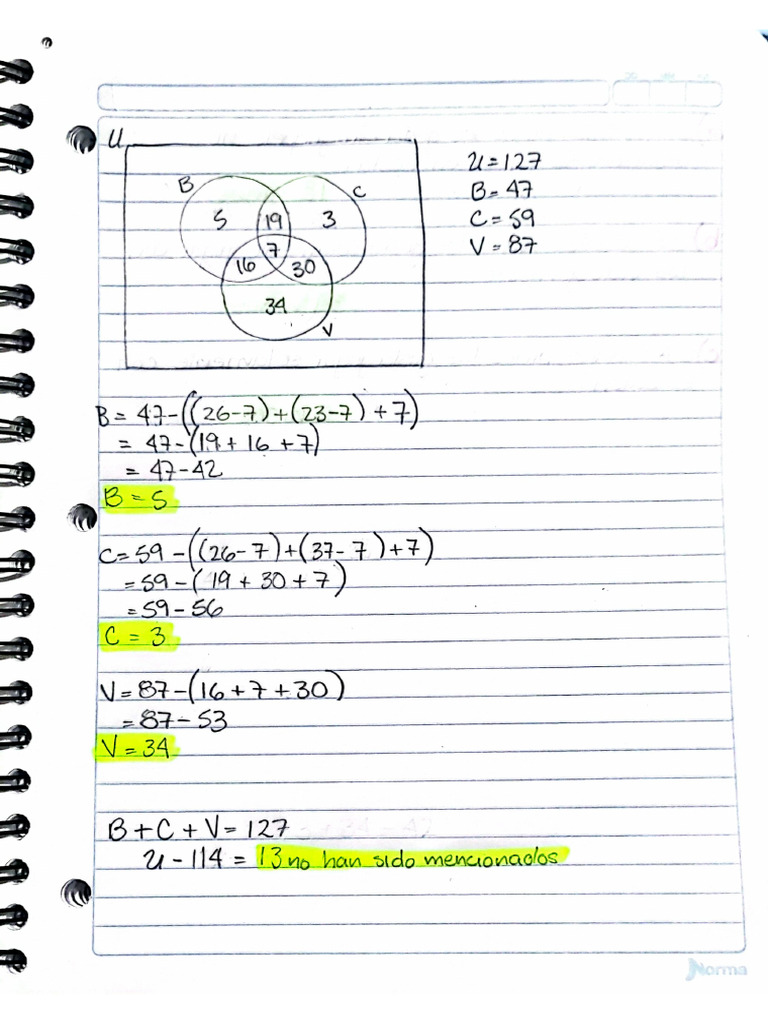 U
U = 127
B = 47
C = 59
V = 87
B
C
5
19
3
7
16
30
34
V
B = 47-((26-7)+(23-7)+7)
= 47-(19+16+7)
= 47-42
B = 5
C = 59-((26-7)+(37-7)+7)
= 59-(19+30+7)
= 59-56
C = 3
V = 87-(16+7+30)
= 87-53
V = 34
B + C + V = 127
U - 114 = 13 no han sido mencionados
Norma